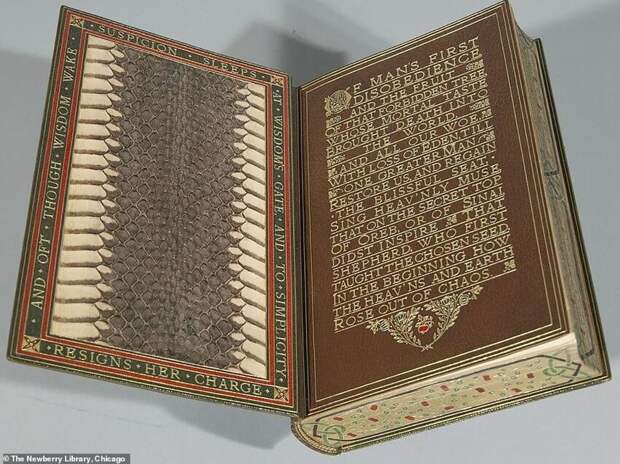 AND OFT THOUGH WISDOM WAKE
SUSPICION SLEEPS
AT WISDOMS GATE, AND TO SIMPLICITY
RESIGNS HER CHARGE
OF MAN'S FIRST
DISOBEDIENCE
AND THE FRUIT
OF THAT FORBIDDEN TREE,
WHOSE MORTAL TASTE
BROUGHT DEATH INTO
THE WORLD
AND ALL OUR WOE,
WITH LOSS OF EDEN, TILL
ONE GREATER MAN
RESTORE US, AND REGAIN
THE BLISSFUL SEAT,
SING HEAV'NLY MUSE,
THAT ON THE SECRET TOP
OF OREB, OR OF SINAI
DIDST INSPIRE THAT
SHEPHERD, WHO FIRST
TAUGHT THE CHOSEN SEED,
IN THE BEGINNING HOW
THE HEAV'NS AND EARTH
ROSE OUT OF CHAOS...
© The Newberry Library, Chicago